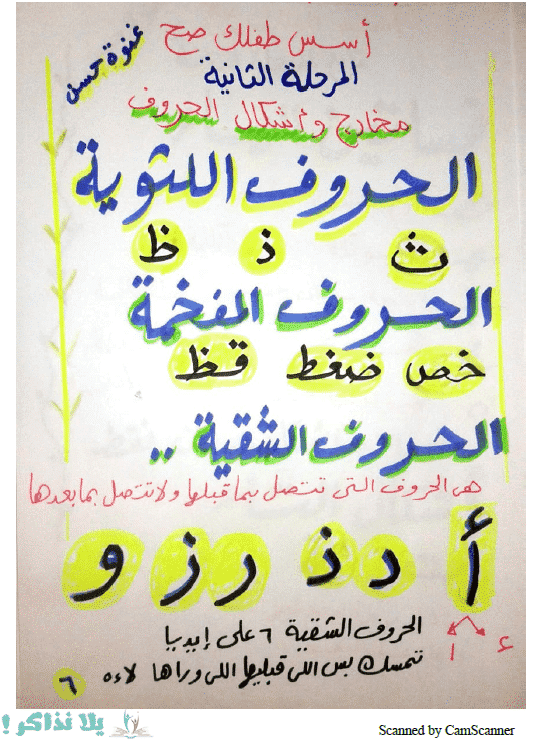 أسس طفلك صح
عنوة حسن
المرحلة الثانية
مخارج وأشكال الحروف
الحروف اللثوية
ث ذ ظ
الحروف المفخمة
خص ضغط قظ
الحروف الشقية ..
هى الحروف التى تتصل بما قبلها ولا تتصل بما بعدها
أ د ذ ر ز و
ا ء
الحروف الشقية ٦ على إيديا
تتمسك بس اللى قبليها اللى وراها لاءه
٦
يلا نذاكر !
Scanned by CamScanner